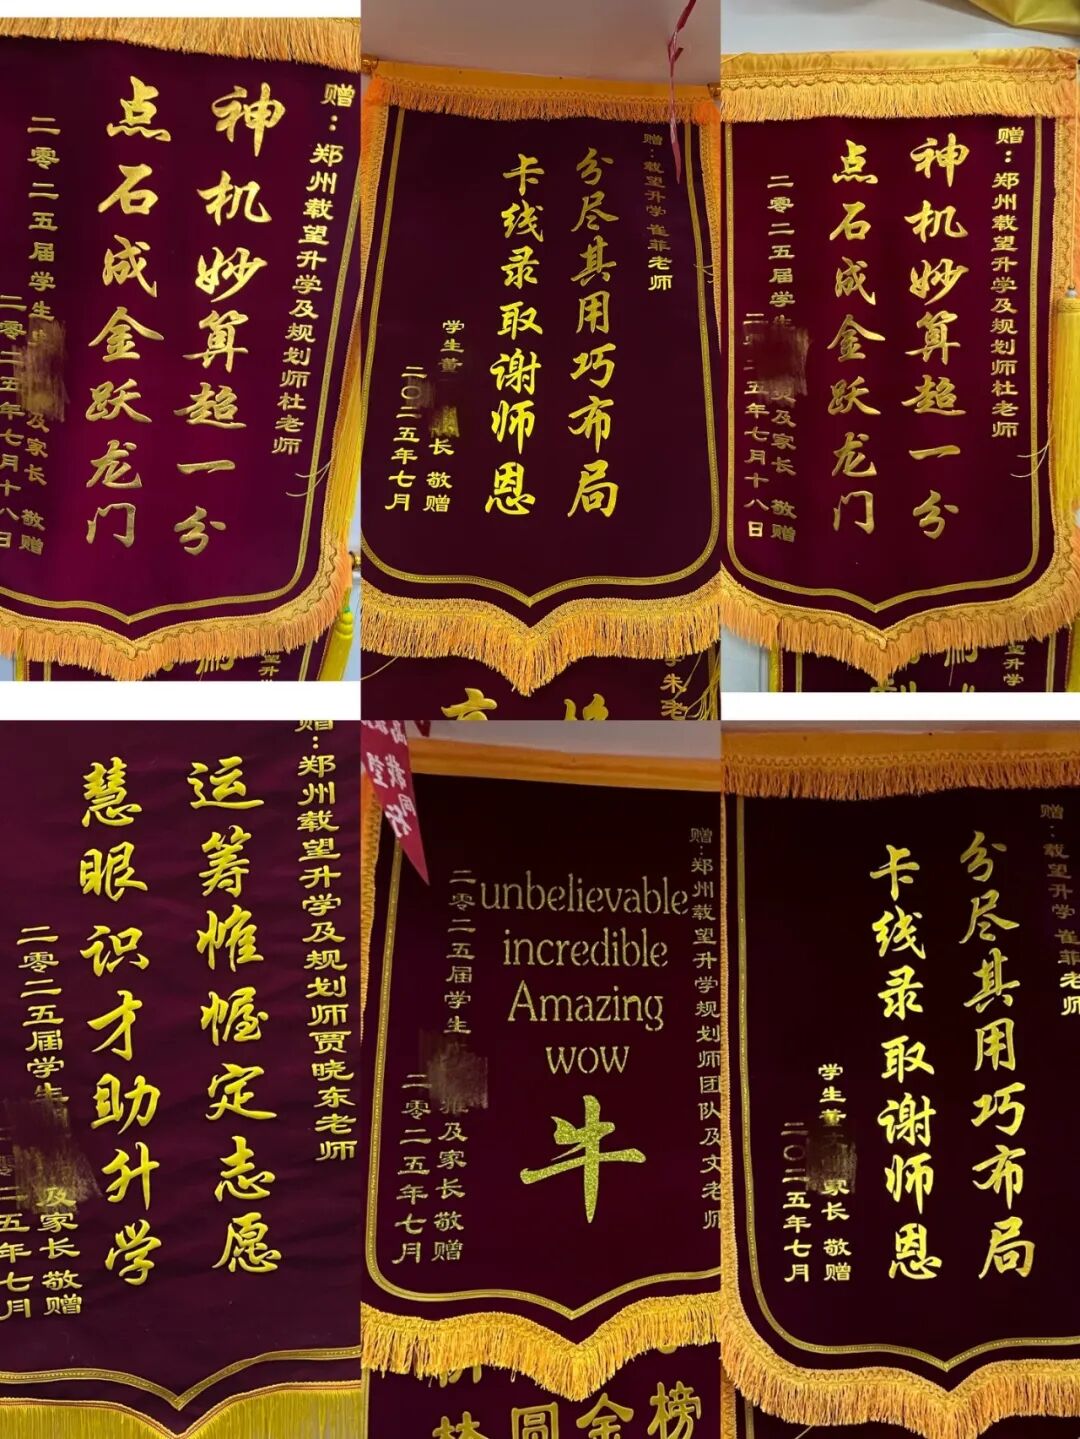 赠：郑州载望升学及规划师杜老师
神机妙算超一分
点石成金跃龙门
二零二五届学生
及家长 敬赠
二零二五年七月十八日
望升学
赠：载望升学 崔菲老师
分尽其用巧布局
卡线录取谢师恩
学生黄
长 敬赠
二〇二五年七月
朱老
赠：郑州载望升学及规划师杜老师
神机妙算超一分
点石成金跃龙门
二零二五届学生
及家长 敬赠
二零二五年七月十八日
望升学
赠：郑州载望升学及规划师贾晓东老师
运筹帷幄定志愿
慧眼识才助升学
二零二五届学生
及家长 敬赠
二五年七月
赠：郑州载望升学规划师团队及文老师
unbelievable
incredible
Amazing
wow
牛
二零二五届学生
雅及家长 敬赠
二零二五年七月
圆金榜
赠：载望升学 崔菲老师
分尽其用巧布局
卡线录取谢师恩
学生黄
家长 敬赠
二〇二五年七月